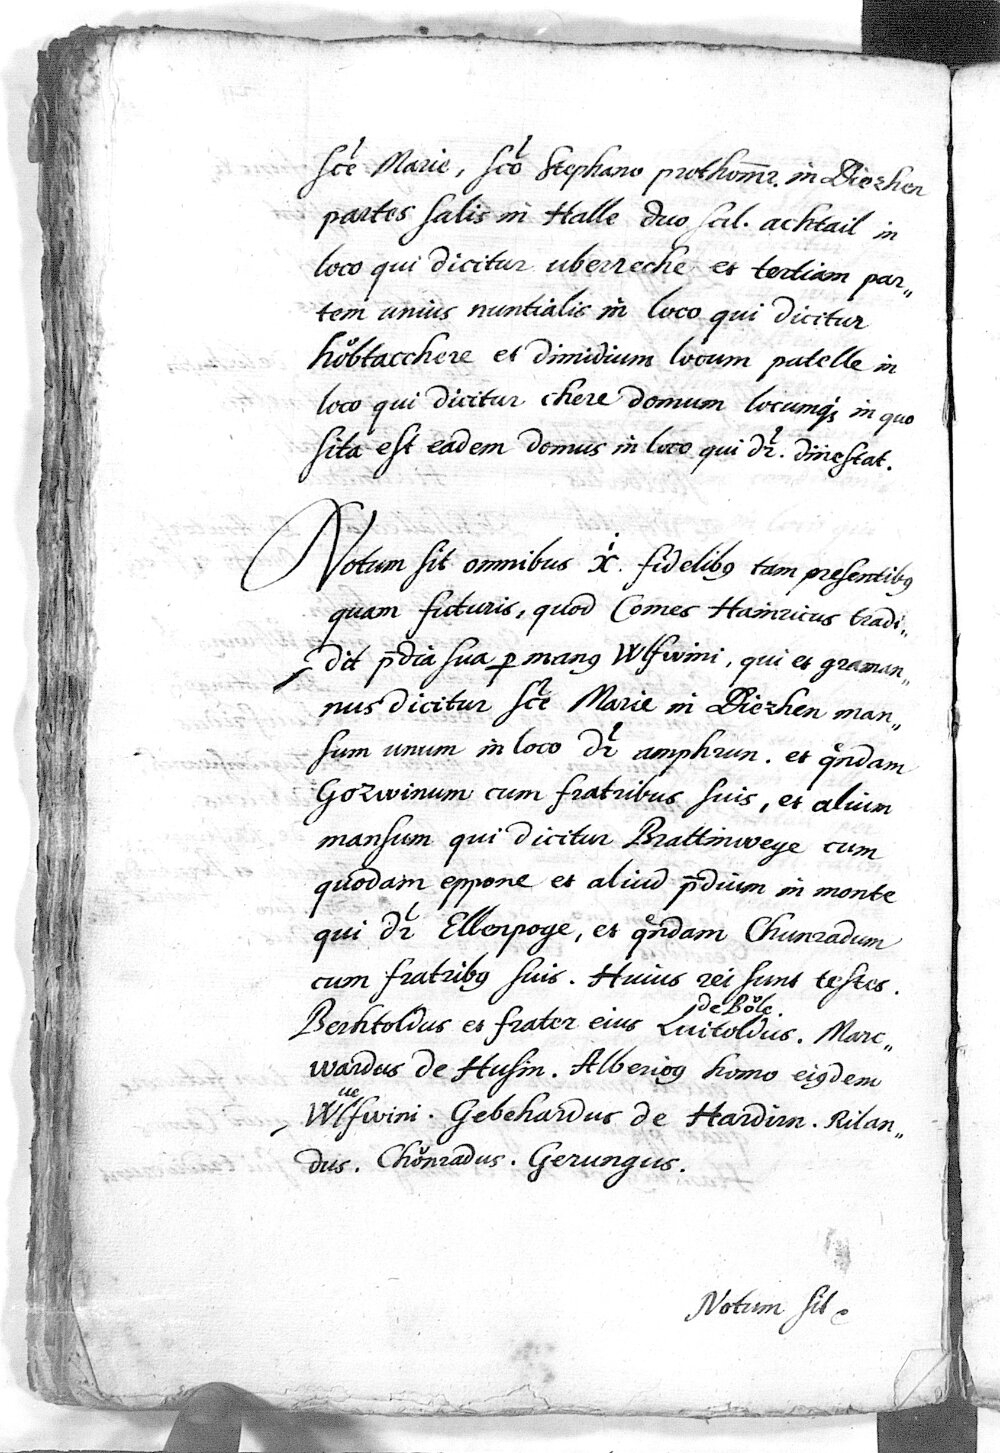 scē Marie, scō Stephano prothom̄r. in Diezhen
partes salis in Halle duo scil. achtail in
loco qui dicitur uberreche et tertiam par„
tem unius nuntialis in loco qui dicitur
hůbtacchere et dimidium locum patelle in
loco qui dicitur chere domum locumq₃ in quo
sita est eadem domus in loco qui dr̄. dinestat.
Notum sit omnibus X̄. fidelibꝰ tam presentibꝰ
quam futuris, quod Comes Hainricus tradi„
dit p̄dia sua ꝑ manꝰ Wlfwini, qui et graman„
nus dicitur scē Marie in Diezhen man„
sum unum in loco dr̄ amphrun. et qͦndam
Gozwinum cum fratribus suis, et alium
mansum qui dicitur Brattinweye cum
quodam eppone et aliud p̄dium in monte
qui dr̄ Ellenpoge, et qͦndam Chunradum
cum fratribꝰ suis. Huius rei sunt testes.
de Bůle.
Berhtoldus et frater eius Luitoldus. Marc„
wardus de Husin. Albericꝰ homo eiꝰdem
ue
Wlfwini. Gebehardus de Hardirn. Rilan„
dus. Chůnradus. Gerungus.
Notum sit